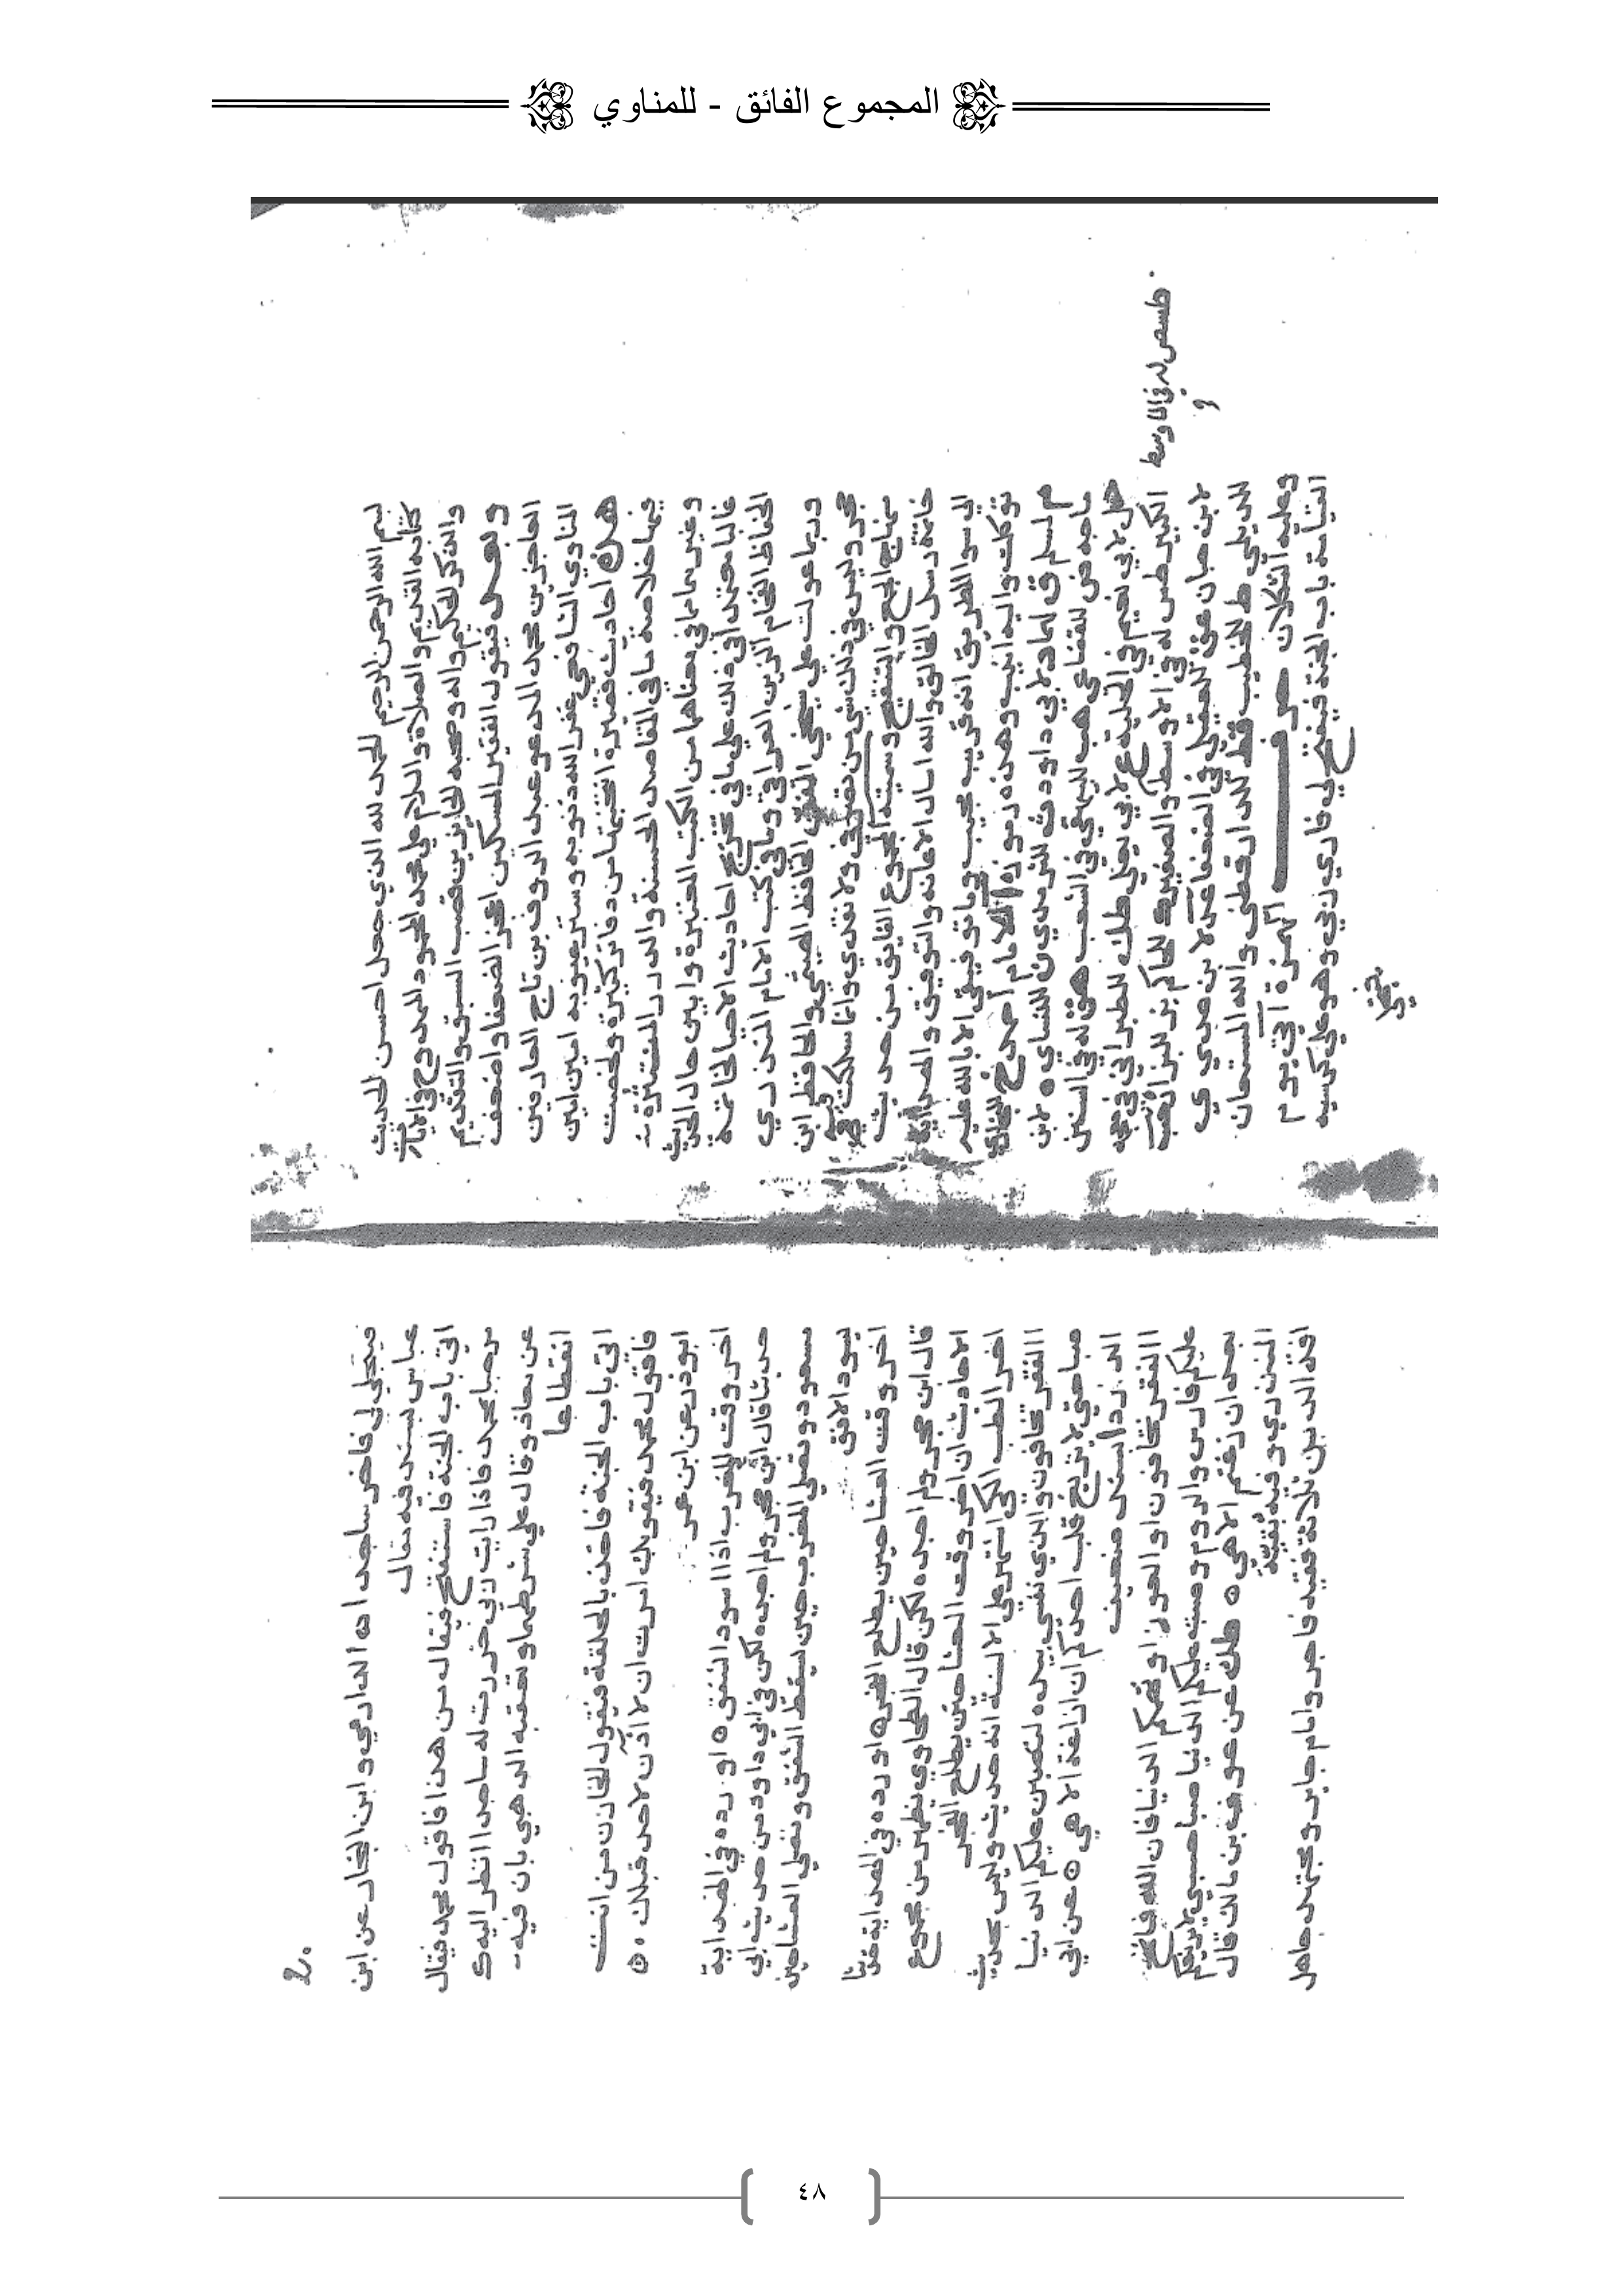 المجموع الفائق - للمناوي
بسم الله الرحمن الرحيم الحمد لله الذي جعل احسن الحديث
كتابه القديم والصلاة والسلام على محمد المحمود الممدوح في الايات
والذكر الحكيم واله وصحبه الحايزين قصب السبق والتقديم
وبعد فيقول الفقير المسكين اعجز الضعفا واضعف
العاجزين محمد المدعو عبد الروف بن تاج العارفين
المناوي الشافعي غفر الله ذنوبه وستر عيوبه امين امين
هذه احاديث قصيرة انتخبتها من دفاتر كثيرة ولخصت
فيها خلاصة ما في المقاصد الحسنة والدرر المنتثرة
وغيرهما مما في معناهما من الكتب المعتبرة وابين حال الحديث
غالبا معتمدا في ذلك على ما في تخريج احاديث الاحيا لخاتمة
الحفاظ الفخام الزين العراقي وما في كتب الامام المنذري
وربما عولت على شيخي الحافظ الهيثمي والحافظ ابن
حجر وليس في ذلك شي من تصرفي ولا نقدي وانما سلكت فيه
منهاج الجمع والتنقيح وسميته المجموع الفايق من حديث
خاتمة رسل الخالق والله اسال الاعانة والتوفيق والهداية
الى سوا الطريق انه قريب مجيب وما توفيقي الا بالله عليه
توكلت واليه انيب وهذه رموزه للامام أحمد خ للبخاري
م لمسلم ق لهما د لابي داود ت للترمذي ن للنساي ه لابن
ماجه ض للقضاعي هب للبيهقي في الشعب هق له في السنن
حل لابي نعيم في الحلية ع لابي يعلى طك للطبراني في معجمه
الكبير طس له في الاوسط والصغير ك للحاكم بز للبزار حب
طسص له في الاوسط
لابن حبان عق للعقيلي في الضعفا عد لابن عدي
للديلمي خط للخطيب قط للدارقطني والله المستعان
وعليه التكلان حرف الهمزة آتي يوم
القيامة باب الجنة فيفتح لي فاري ربي وهو على كرسيه
فيتجلى
٢٠
فيتجلى لي فاخر ساجدا ه الدارمي وابن النجار عن ابن
عباس بسند فيه مقال
اتي باب الجنة فاستفتح فيقال من هذا فاقول محمد فيقال
مرحبا بمحمد فاذا رايت ربي خررت له ساجدا انظر اليه ك
عن معاذ وقال على شرطهما وتعقبه الذهبي بان فيه
انقطاعا
اتي باب الجنة فاخذ بالحلقة فيقول الخازن من انت
فاقول محمد فيقول بك امرت ان لا آذن لاحد قبلك ه
ابو ذر عن ابن عمر
اخر وقت المغرب اذا اسود الشفق ه اورده في الهداية
حديثا قال ابن حجر ولم اجده لكن في ابي داود من حديث ابي
مسعود وتصلي المغرب حين يسقط الشفق وتصلي العشا حين
يسود الافق
اخر وقت العشا حين يطلع الفجر ه اورده في الهداية حديثا
قال ابن حجر ولم اجده لكن قال الطحاوي يظهر من مجموع
الاحاديث ان اخر وقت العشا حين يطلع الفجر
اخر الطب الكي اشتهر على الالسنة انه حديث وليس بحديث
االفقر تخافون والذي نفسي بيده لتصبن عليكم الدنيا
صبا حتى لا يزيغ قلب احدكم ان ازاغه الا هي ه عن ابي
الدردا اسناد ضعيف
االفقر تخافون او العوز او تهمكم الدنيا فان الله فاتح
عليكم فارس والروم وصبت عليكم الدنيا صبا حتى لا يزيغكم
بعدي ان زغتم الا هي ه طك عن عوف بن مالك قال
المنذري وفيه بقية
افة الدين ثلاثة فقيه فاجر وامام جاير ومجتهد جاهل
٤٨